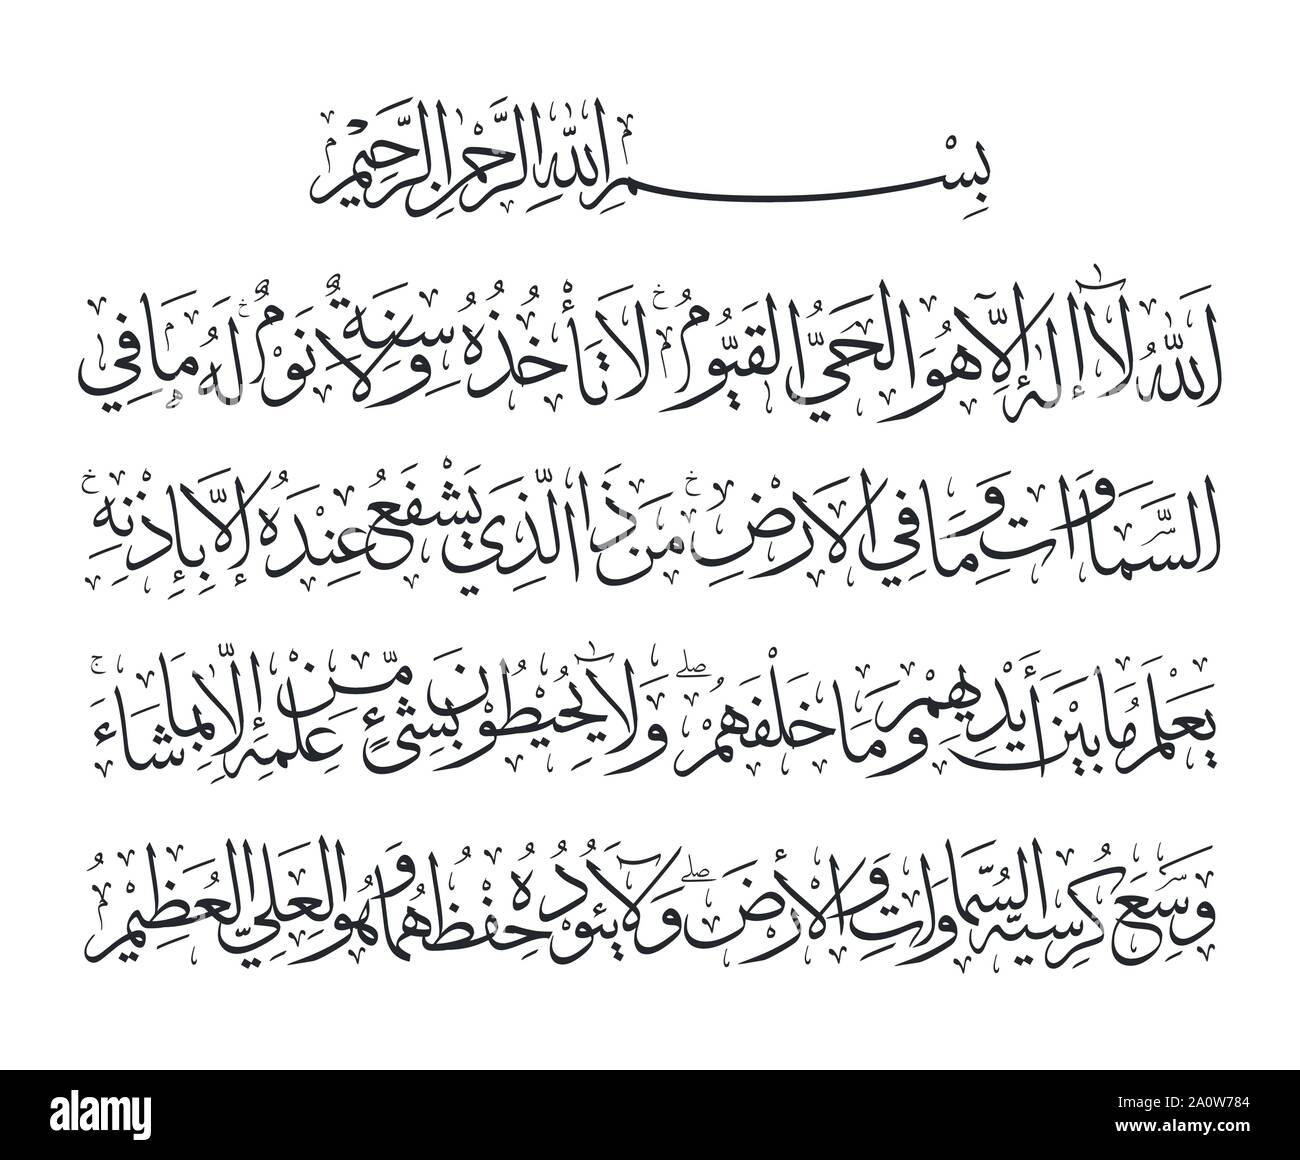 بِسْمِ اللَّهِ الرَّحْمٰنِ الرَّحِيْمِ
اَللَّهُ لَآ إِلٰهَ إِلَّا هُوَ الْحَيُّ الْقَيُّومُ لَا تَأْخُذُهُ سِنَةٌ وَلَا نَوْمٌ لَهُ مَا فِي
السَّمَاوَاتِ وَمَا فِي الْأَرْضِ مَنْ ذَا الَّذِي يَشْفَعُ عِنْدَهُ إِلَّا بِإِذْنِهِ
يَعْلَمُ مَا بَيْنَ أَيْدِيهِمْ وَمَا خَلْفَهُمْ وَلَا يُحِيْطُونَ بِشَيْءٍ مِّنْ عِلْمِهِ إِلَّا بِمَا شَاءَ
وَسِعَ كُرْسِيُّهُ السَّمَاوَاتِ وَالْأَرْضَ وَلَا يَئُودُهُ حِفْظُهُمَا وَهُوَ الْعَلِيُّ الْعَظِيْمُ
alamy
Image ID: 2A0W784
www.alamy.com